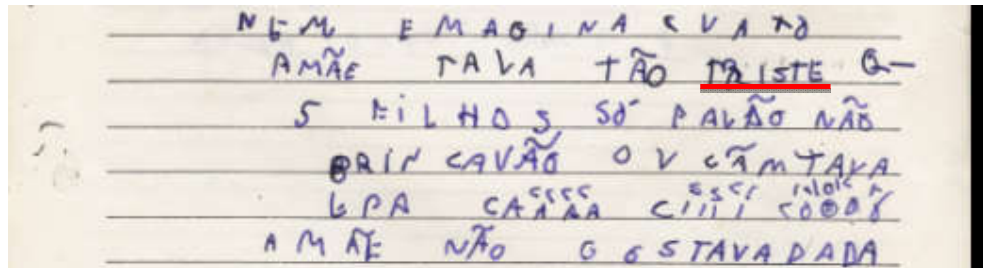 NEM EMAGINA CUATO
AMÃE TAVA TÃO TRISTE Q-
5 FILHOS SÓ PAVÃO NÃO
BRINCAVÃO OU CÃMTAVA
ERA
AMÃE NÃO GOSTAVADADA